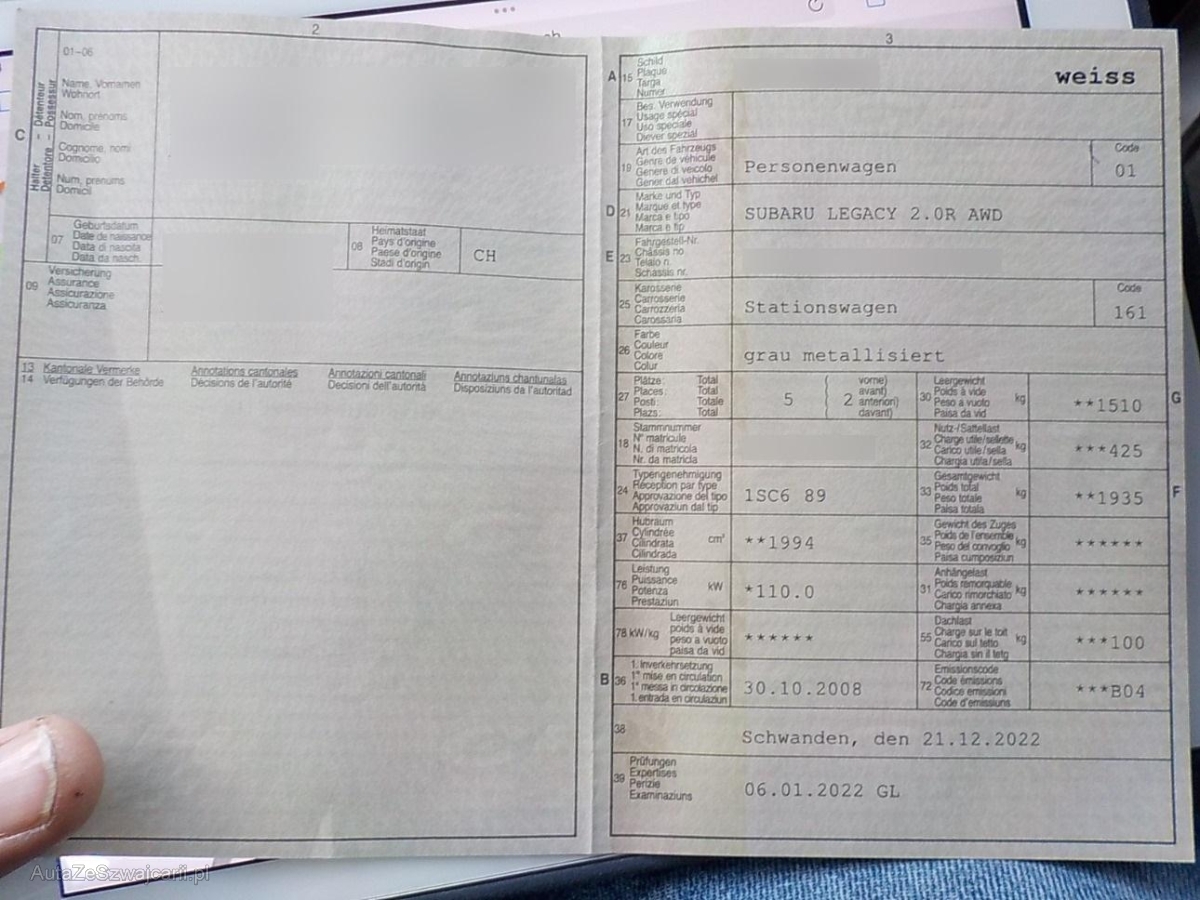 2
01-06
Name, Vornamen
Wohnort
Nom, prénoms
Domicile
Cognome, nomi
Domicilio
Num, prenums
Domicil
C
Halter - Détenteur
Detentore - Possessur
07
Geburtsdatum
Date de naissance
Data di nascita
Data da nasch.
08
Heimatstaat
Pays d'origine
Paese d'origine
Stadi d'origin
CH
09
Versicherung
Assurance
Assicurazione
Assicuranza
13 Kantonale Vermerke Annotations cantonales Annotazioni cantonali Annotaziuns chantunalas
14 Verfügungen der Behörde Décisions de l'autorité Decisioni dell'autorità Disposiziuns da l'autoritad
3
A
15
Schild
Plaque
Targa
Numer
weiss
17
Bes. Verwendung
Usage spécial
Uso speciale
Diever spezial
19
Art des Fahrzeugs
Genre de véhicule
Genere di veicolo
Gener dal vehichel
Personenwagen
Code
01
D
21
Marke und Typ
Marque et type
Marca e tipo
Marca e tip
SUBARU LEGACY 2.0R AWD
E
23
Fahrgestell-Nr.
Châssis no
Telaio n.
Schassis nr.
25
Karosserie
Carrosserie
Carrozzeria
Carossaria
Stationswagen
Code
161
26
Farbe
Couleur
Colore
Colur
grau metallisiert
27
Plätze: Total
Places: Total
Posti: Totale
Plazs: Total
5
2
vorne)
avant)
anteriori)
davant)
30
Leergewicht
Poids à vide
Peso a vuoto
Paisa da vid
kg
**1510
G
18
Stammnummer
N° matricule
N. di matricola
Nr. da matricla
32
Nutz-/Sattellast
Charge utile/sellette
Carico utile/sella
Chargia utila/sella
kg
***425
24
Typengenehmigung
Réception par type
Approvazione del tipo
Approvaziun dal tip
1SC6 89
33
Gesamtgewicht
Poids total
Peso totale
Paisa totala
kg
**1935
F
37
Hubraum
Cylindrée
Cilindrata
Cilindrada
cm³
**1994
35
Gewicht des Zuges
Poids de l'ensemble
Peso del convoglio
Paisa cumposiziun
kg
******
76
Leistung
Puissance
Potenza
Prestaziun
kW
*110.0
31
Anhängelast
Poids remorquable
Carico rimorchiato
Chargia annexa
kg
******
78 kW/kg
Leergewicht
poids à vide
peso a vuoto
paisa da vid
******
55
Dachlast
Charge sur le toit
Carico sul tetto
Chargia sin il tetg
kg
***100
B
36
1. Inverkehrsetzung
1re mise en circulation
1a messa in circolazione
1. entrada en circulaziun
30.10.2008
72
Emissionscode
Code émissions
Codice emissioni
Code d'emissiuns
***B04
38
Schwanden, den 21.12.2022
39
Prüfungen
Expertises
Perizie
Examinaziuns
06.01.2022 GL
AutaZeSzwajcarii.pl